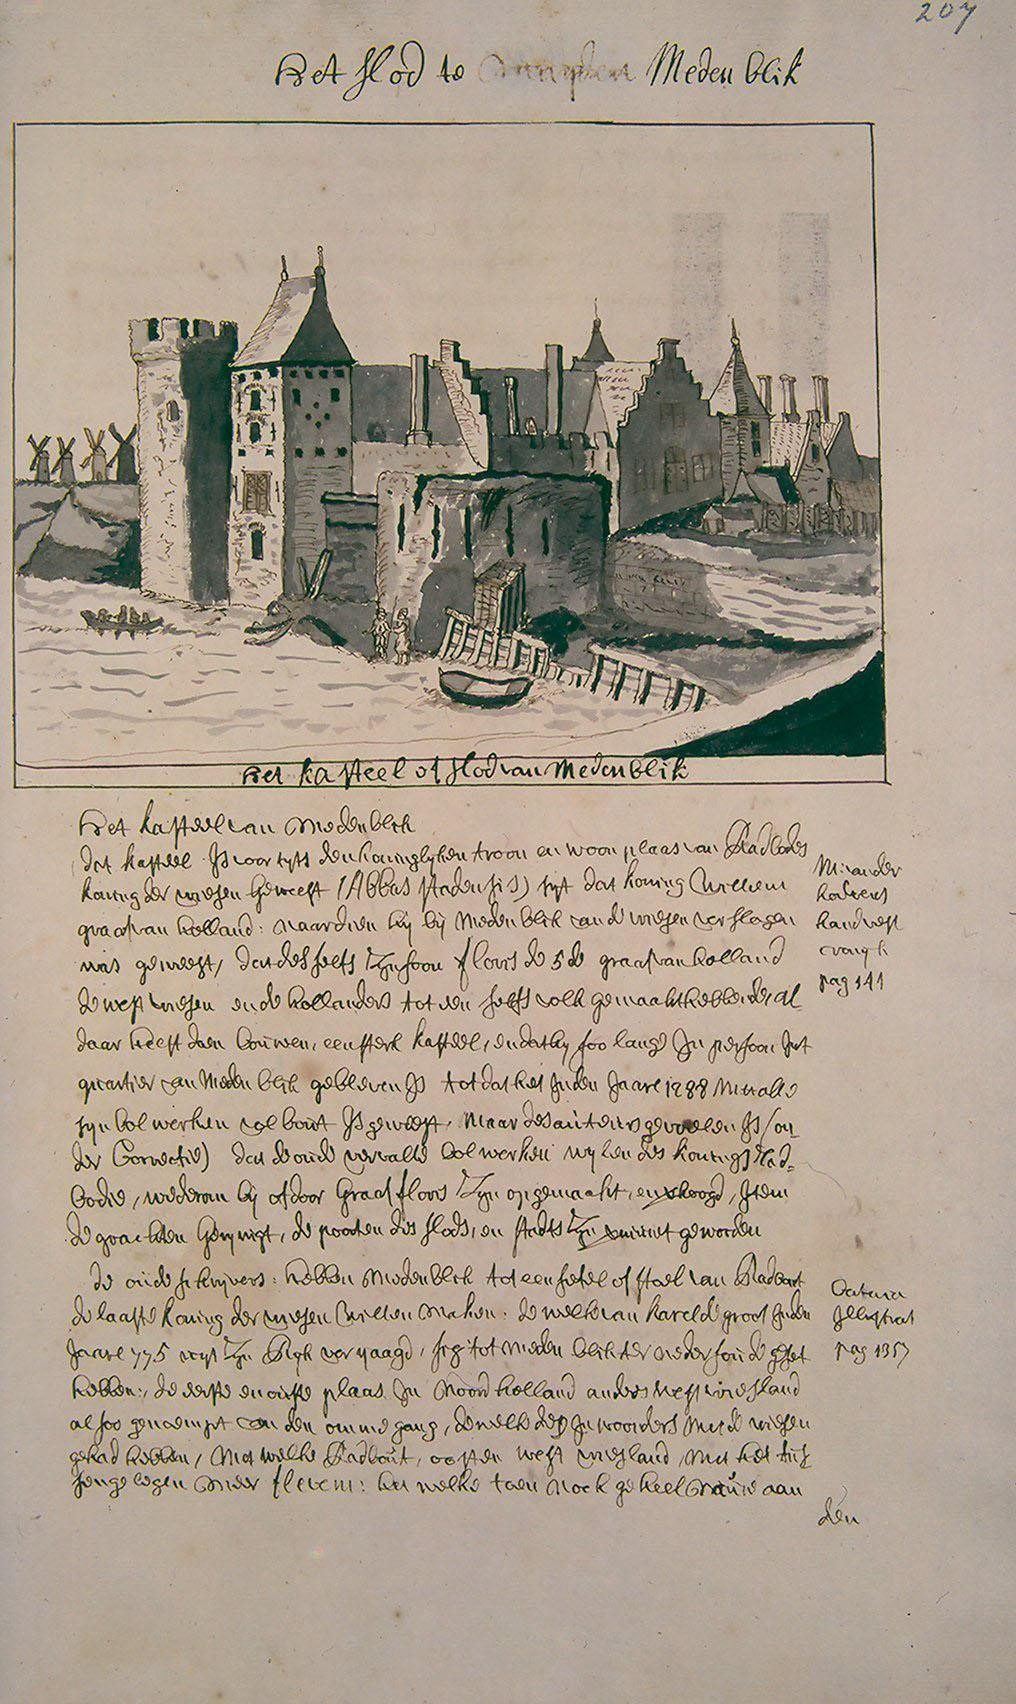 207
Het slod te Meden blik
Het kasteel of slod van Medenblik
Het kasteel van Medenblik
dat kasteel Is voortyts den koninglyken troon en woon plaas van Radbodes
koning der vriesen geweest (Abbas Stadensis) syt dat koning Willem
graaf van holland: naardien hy bij Medenblik van de vriesen verslagen
was geweest, dat desselfs Zyn soon floris de 5de graaf van holland
de west vriesen en de hollanders tot een selfs volk gemaakt hebbende, al
daar heeft doen bouwen, een sterk kasteel, en dat hy soo lange In persoon Int
quartier van Meden blik gebleven Is tot dat het Inden Jaare 1288 Met alle
syn bolwerken vol bout Is geweest, Maar des auteurs gevoelen Is (on
der Correctie) dat de oude vervalle bolwerken wylen des konings Rad-
bodes, wederom bij of door Graaf floris Zyn opgemaakt, en verhoogd, Item
de grachten gerynigt, de poorten des slods, en stadts Zyn geworden
de oude schrijvers: hebben Medenblik tot een setel of stoel van Radbout
de laaste koning der vriesen willen maken: de welke van karel de groot Inden
Jaare 775 uyt Zyn Ryk verjaagd, sig tot Meden blik ter neder soude geset
hebben:, de eerste en oudste plaas In Noord holland anders west vriesland
alsoo genoempt van den omme gang, de welke des Inwoonders Met de vriesen
gehad hebben, Met welke Radbout, oosten west vriesland, Met het tus
sengelegen Meer flevum: het welke toen Noch geheel Nauw aan
den
Mirander
handvest
pag 141
Batavia
Illustrat
pag 1357